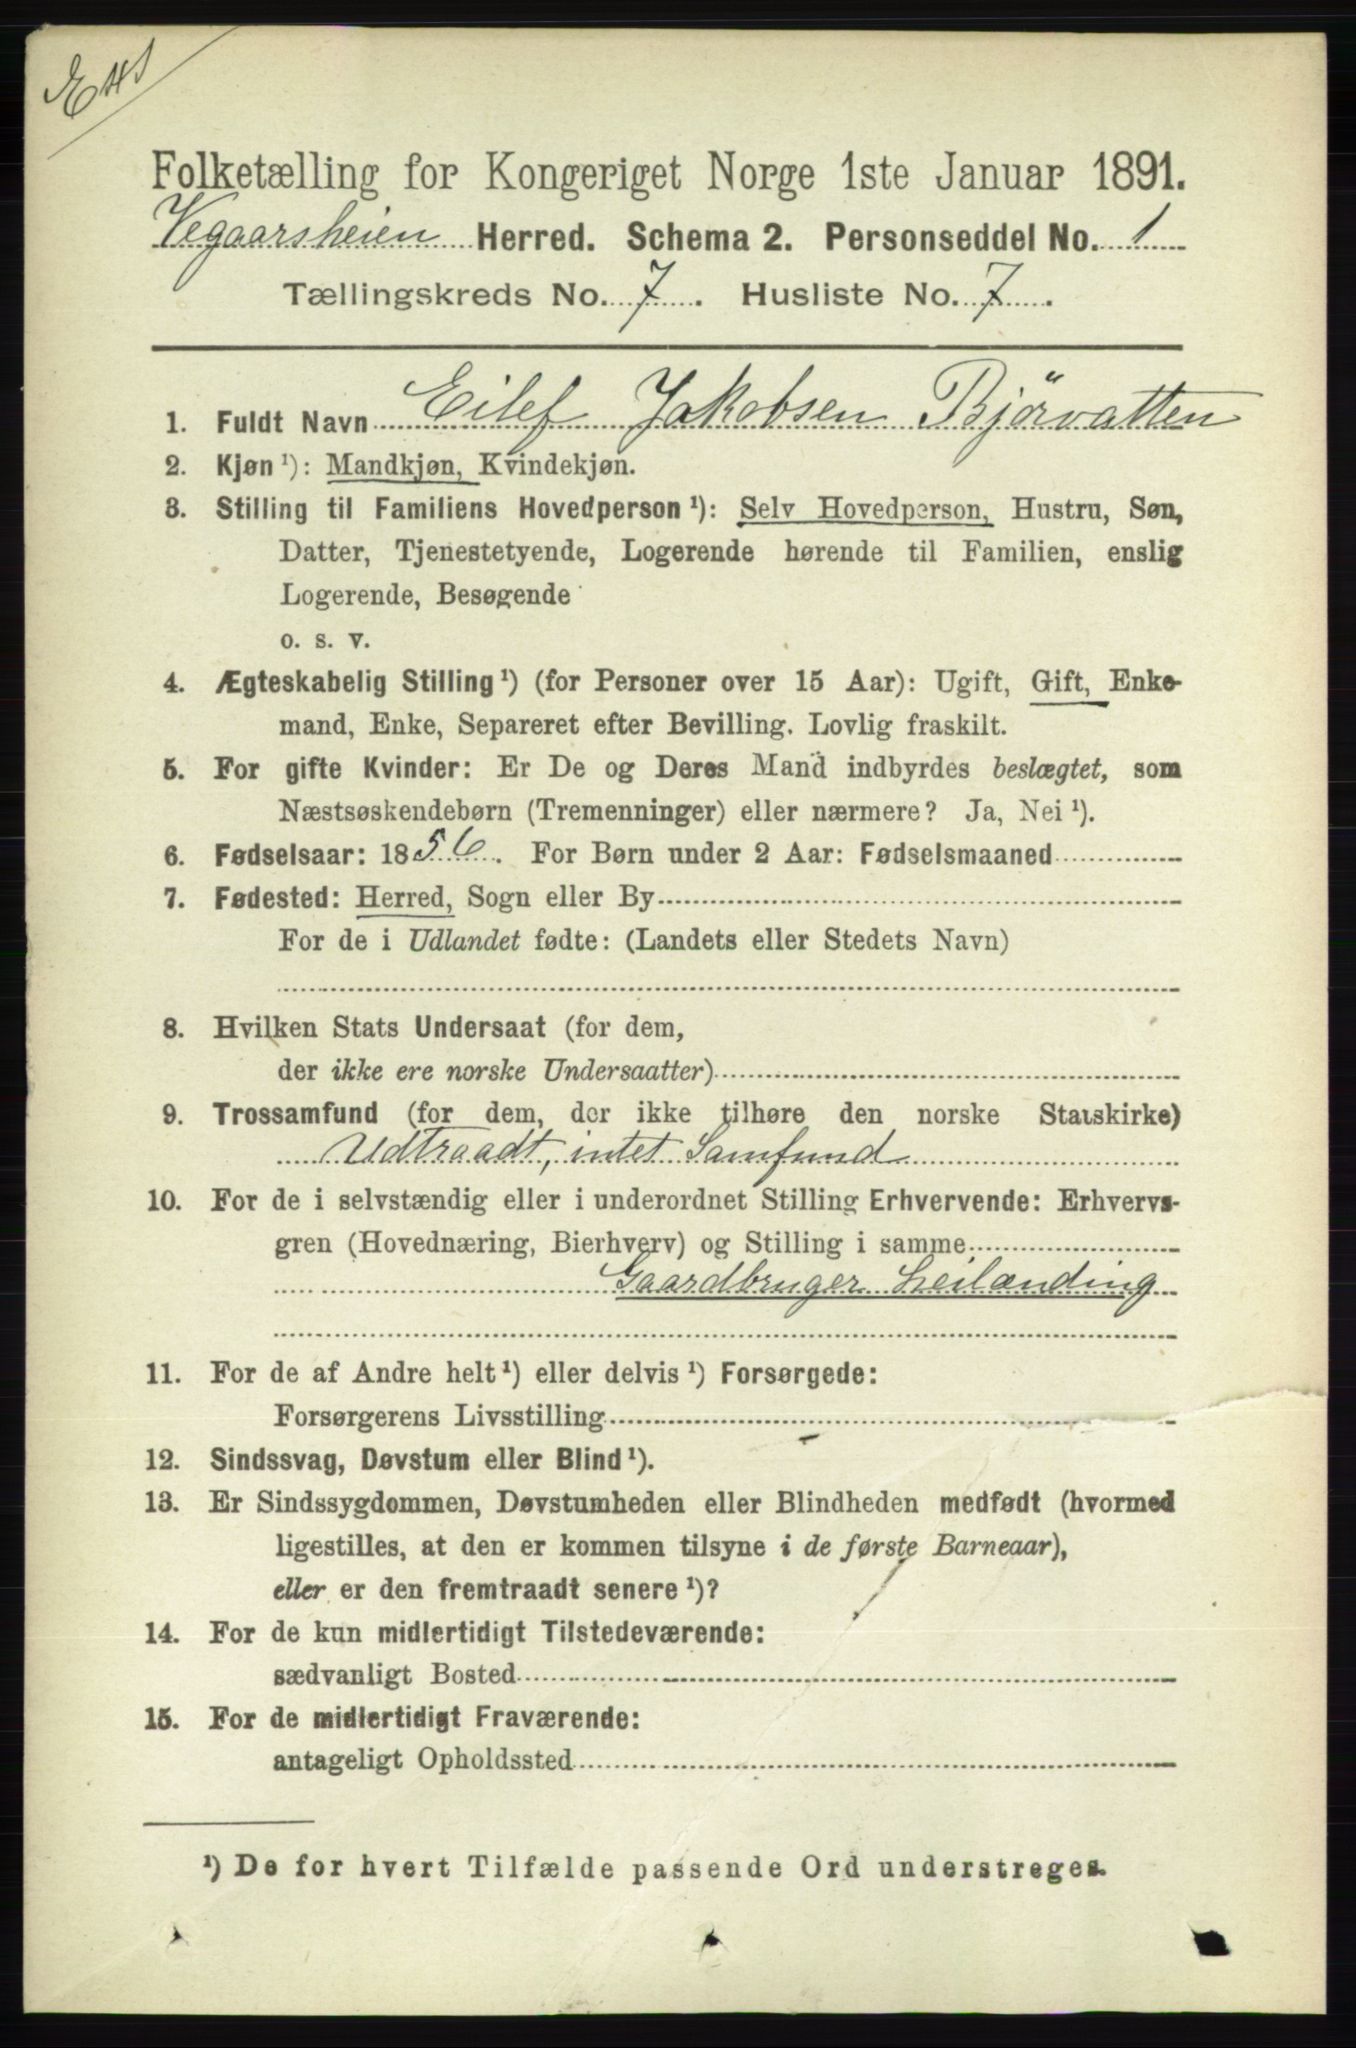 Folketælling for Kongeriget Norge 1ste Januar 1891.
Vegaarsheien Herred. Schema 2. Personseddel No. 1
Tællingskreds No. 7. Husliste No. 7.
1. Fuldt Navn Eilef Jakobsen Bjørvatten
2. Kjøn ¹): Mandkjøn, Kvindekjøn.
3. Stilling til Familiens Hovedperson ¹): Selv Hovedperson, Hustru, Søn,
Datter, Tjenestetyende, Logerende hørende til Familien, enslig
Logerende, Besøgende
o. s. v.
4. Ægteskabelig Stilling ¹) (for Personer over 15 Aar): Ugift, Gift, Enke-
mand, Enke, Separeret efter Bevilling. Lovlig fraskilt.
5. For gifte Kvinder: Er De og Deres Mand indbyrdes beslægtet, som
Næstsøskendebørn (Tremenninger) eller nærmere? Ja, Nei ¹).
6. Fødselsaar: 1856. For Børn under 2 Aar: Fødselsmaaned
7. Fødested: Herred, Sogn eller By
For de i Udlandet fødte: (Landets eller Stedets Navn)
8. Hvilken Stats Undersaat (for dem,
der ikke ere norske Undersaatter)
9. Trossamfund (for dem, der ikke tilhøre den norske Statskirke)
Udtraadt, intet Samfund
10. For de i selvstændig eller i underordnet Stilling Erhvervende: Erhvervs-
gren (Hovednæring, Bierhverv) og Stilling i samme
Gaardbruger Leilænding
11. For de af Andre helt ¹) eller delvis ¹) Forsørgede:
Forsørgerens Livsstilling
12. Sindssvag, Døvstum eller Blind ¹).
13. Er Sindssygdommen, Døvstumheden eller Blindheden medfødt (hvormed
ligestilles, at den er kommen tilsyne i de første Barneaar),
eller er den fremtraadt senere ¹)?
14. For de kun midlertidigt Tilstedeværende:
sædvanligt Bosted
15. For de midlertidigt Fraværende:
antageligt Opholdssted
¹) De for hvert Tilfælde passende Ord understreges.